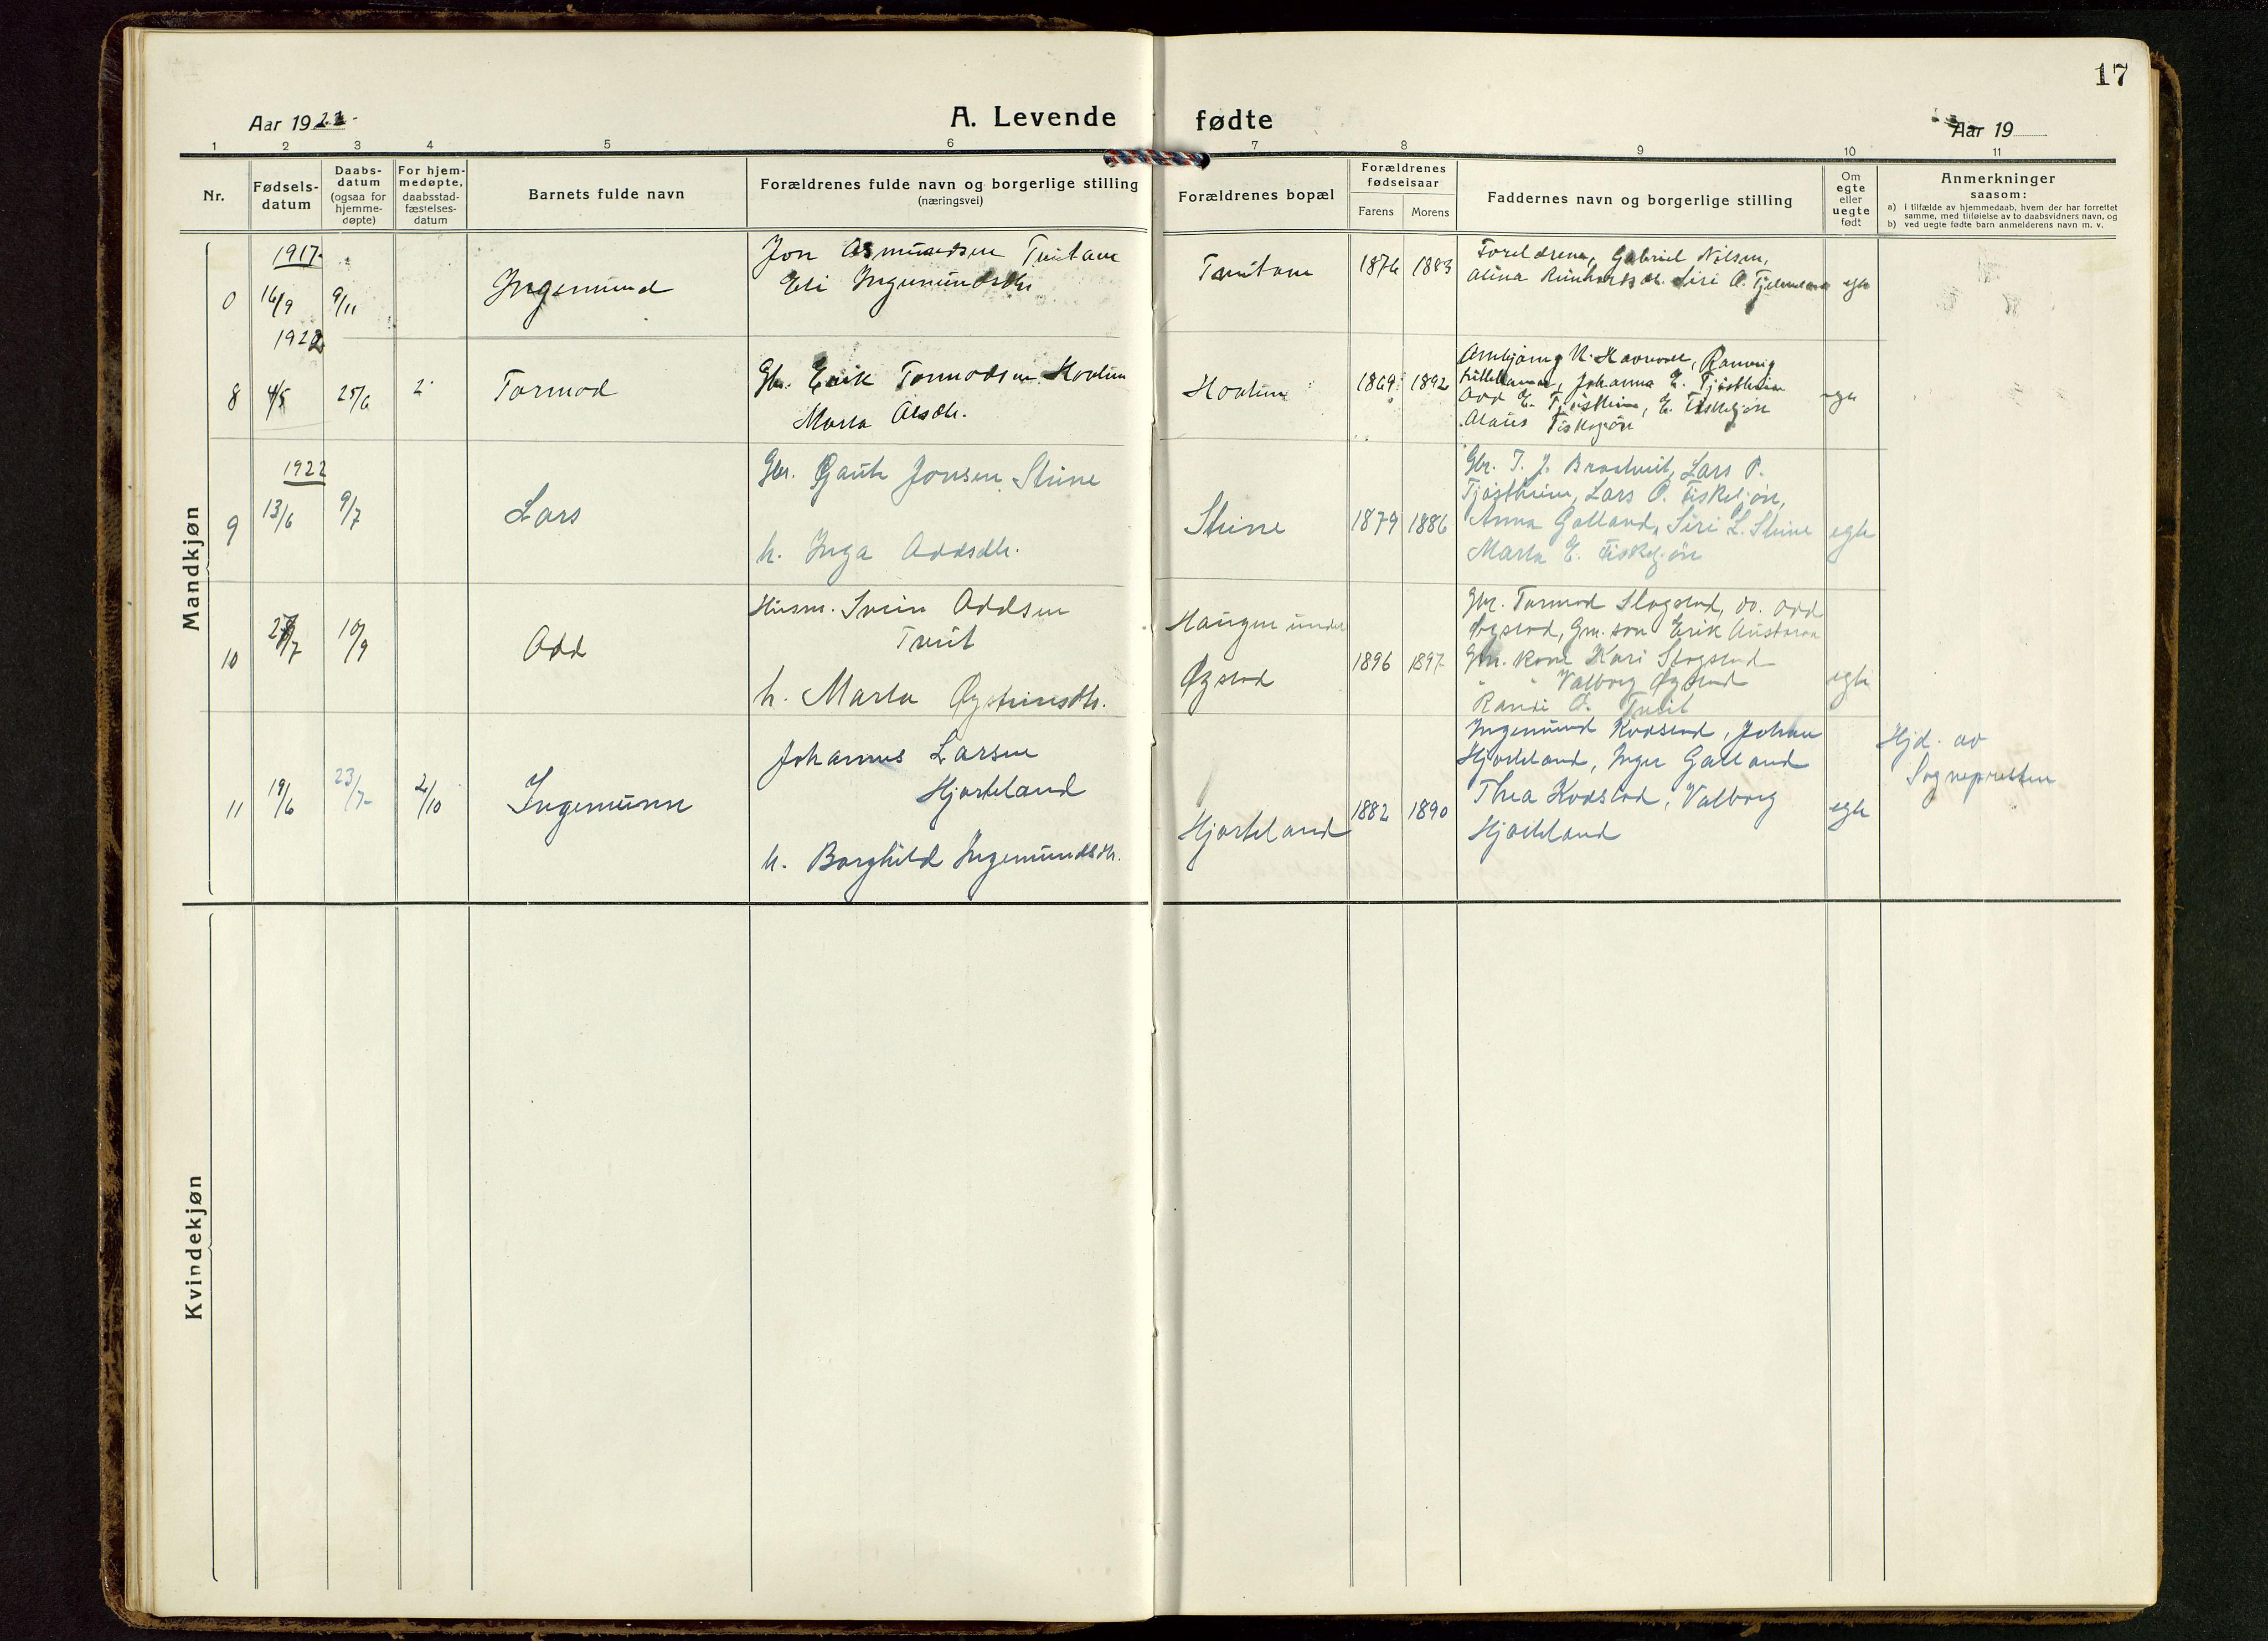 17
Aar 1922.
A. Levende fødte
Aar 19
1 2 3 4 5 6 7 8 9 10 11
Nr.
Fødsels-
datum
Daabs-
datum
(ogsaa for
hjemme-
døpte)
For hjem-
medøpte,
daabsstad-
fæstelses-
datum
Barnets fulde navn
Forældrenes fulde navn og borgerlige stilling
(næringsvei)
Forældrenes bopæl
Forældrenes
fødselsaar
Farens Morens
Faddernes navn og borgerlige stilling
Om
egte
eller
uegte
født
Anmerkninger
saasom:
a) I tilfælde av hjemmedaab, hvem der har forrettet
samme, med tilføielse av to daabsvidners navn, og
b) ved uegte fødte barn anmelderens navn m. v.
Mandkjøn
1917
0 16/9 9/11 Ingemund
Jon Asmundsen Tveitane
Eli Ingemundsdtr
Tveitane 1876 1883
Foreldrene, Gabriel Nilsen,
Alina Reinhardsdtr. Siri O.
egte
1922
8 4/5 25/6 Tormod
Gbr. Erik Tormodsen Hovlien
Marta Olsdtr.
Hovlien 1869 1892
Johanna E. Tjøstheim
Odd E. Tjøstheim, E. Fiskekjøn
Fiskekjøn
egte
1922
9 13/6 9/7 Lars
Gbr. Gaute Jonsen Steine
h. Inga Oddsdtr.
Steine 1879 1886
Gbr. T. J. Bratveit, Lars P.
Tjøstheim, Lars O. Fiskekjøn,
Anna Galland, Siri L. Steine
Marta E. Fiskekjøn
egte
10 10/9 Odd
Husm. Svein Oddsen
Tveit
h. Marta Øysteinsdtr.
Haugen under
Øystad 1896 1897
Gbr. Tormod Slogstad, do. Odd
Øystad, Gm. søn Erik
Gbr. kone Kari Slogstad
" " Valborg Øystad
Randi O. Tveit
egte
11 19/6 23/7 2/10 Ingemunn
Johannes Larsen
Hjorteland
h. Borghild Ingemundsdtr.
Hjorteland 1882 1890
Ingemund Kvæstad, Johan
Hjorteland, Inger Galland
Thea Kvæstad, Valborg
Hjorteland
egte
Hjd. av
Sognepresten
Kvindekjøn